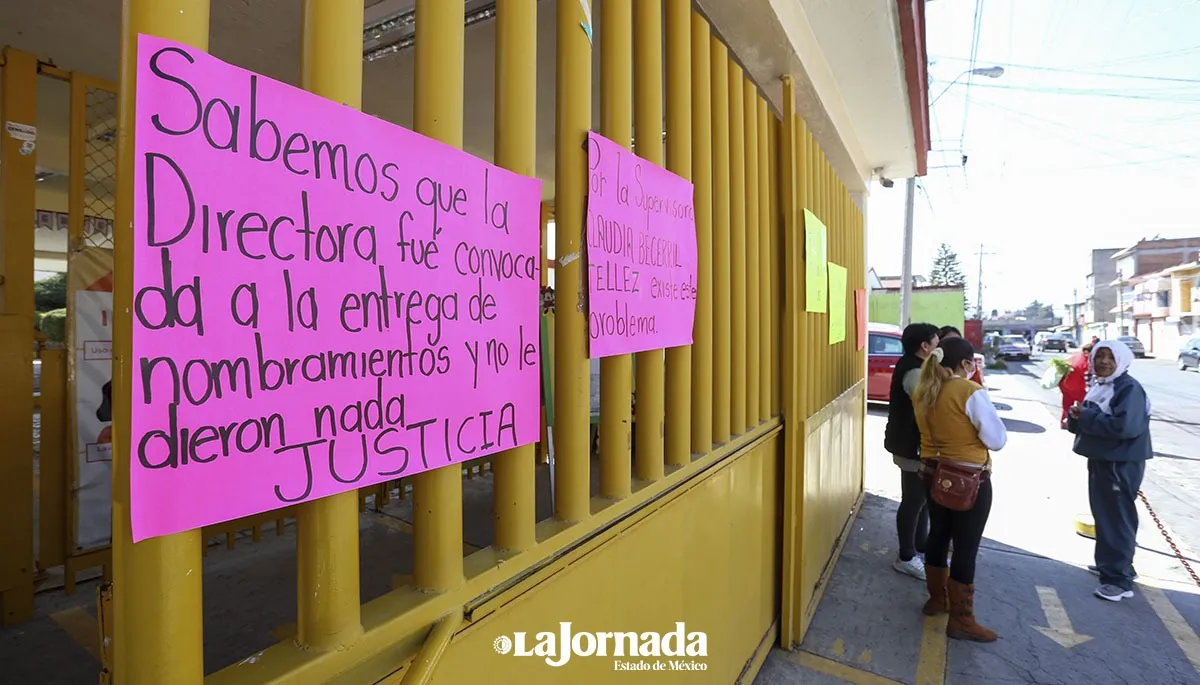 Sabemos que la
Directora fué convoca-
da a la entrega de
nombramientos y no le
dieron nada
JUSTICIA
Por la Supervisora
CLAUDIA BECERRIL
TELLEZ existe este
problema.
LaJornada
Estado de México